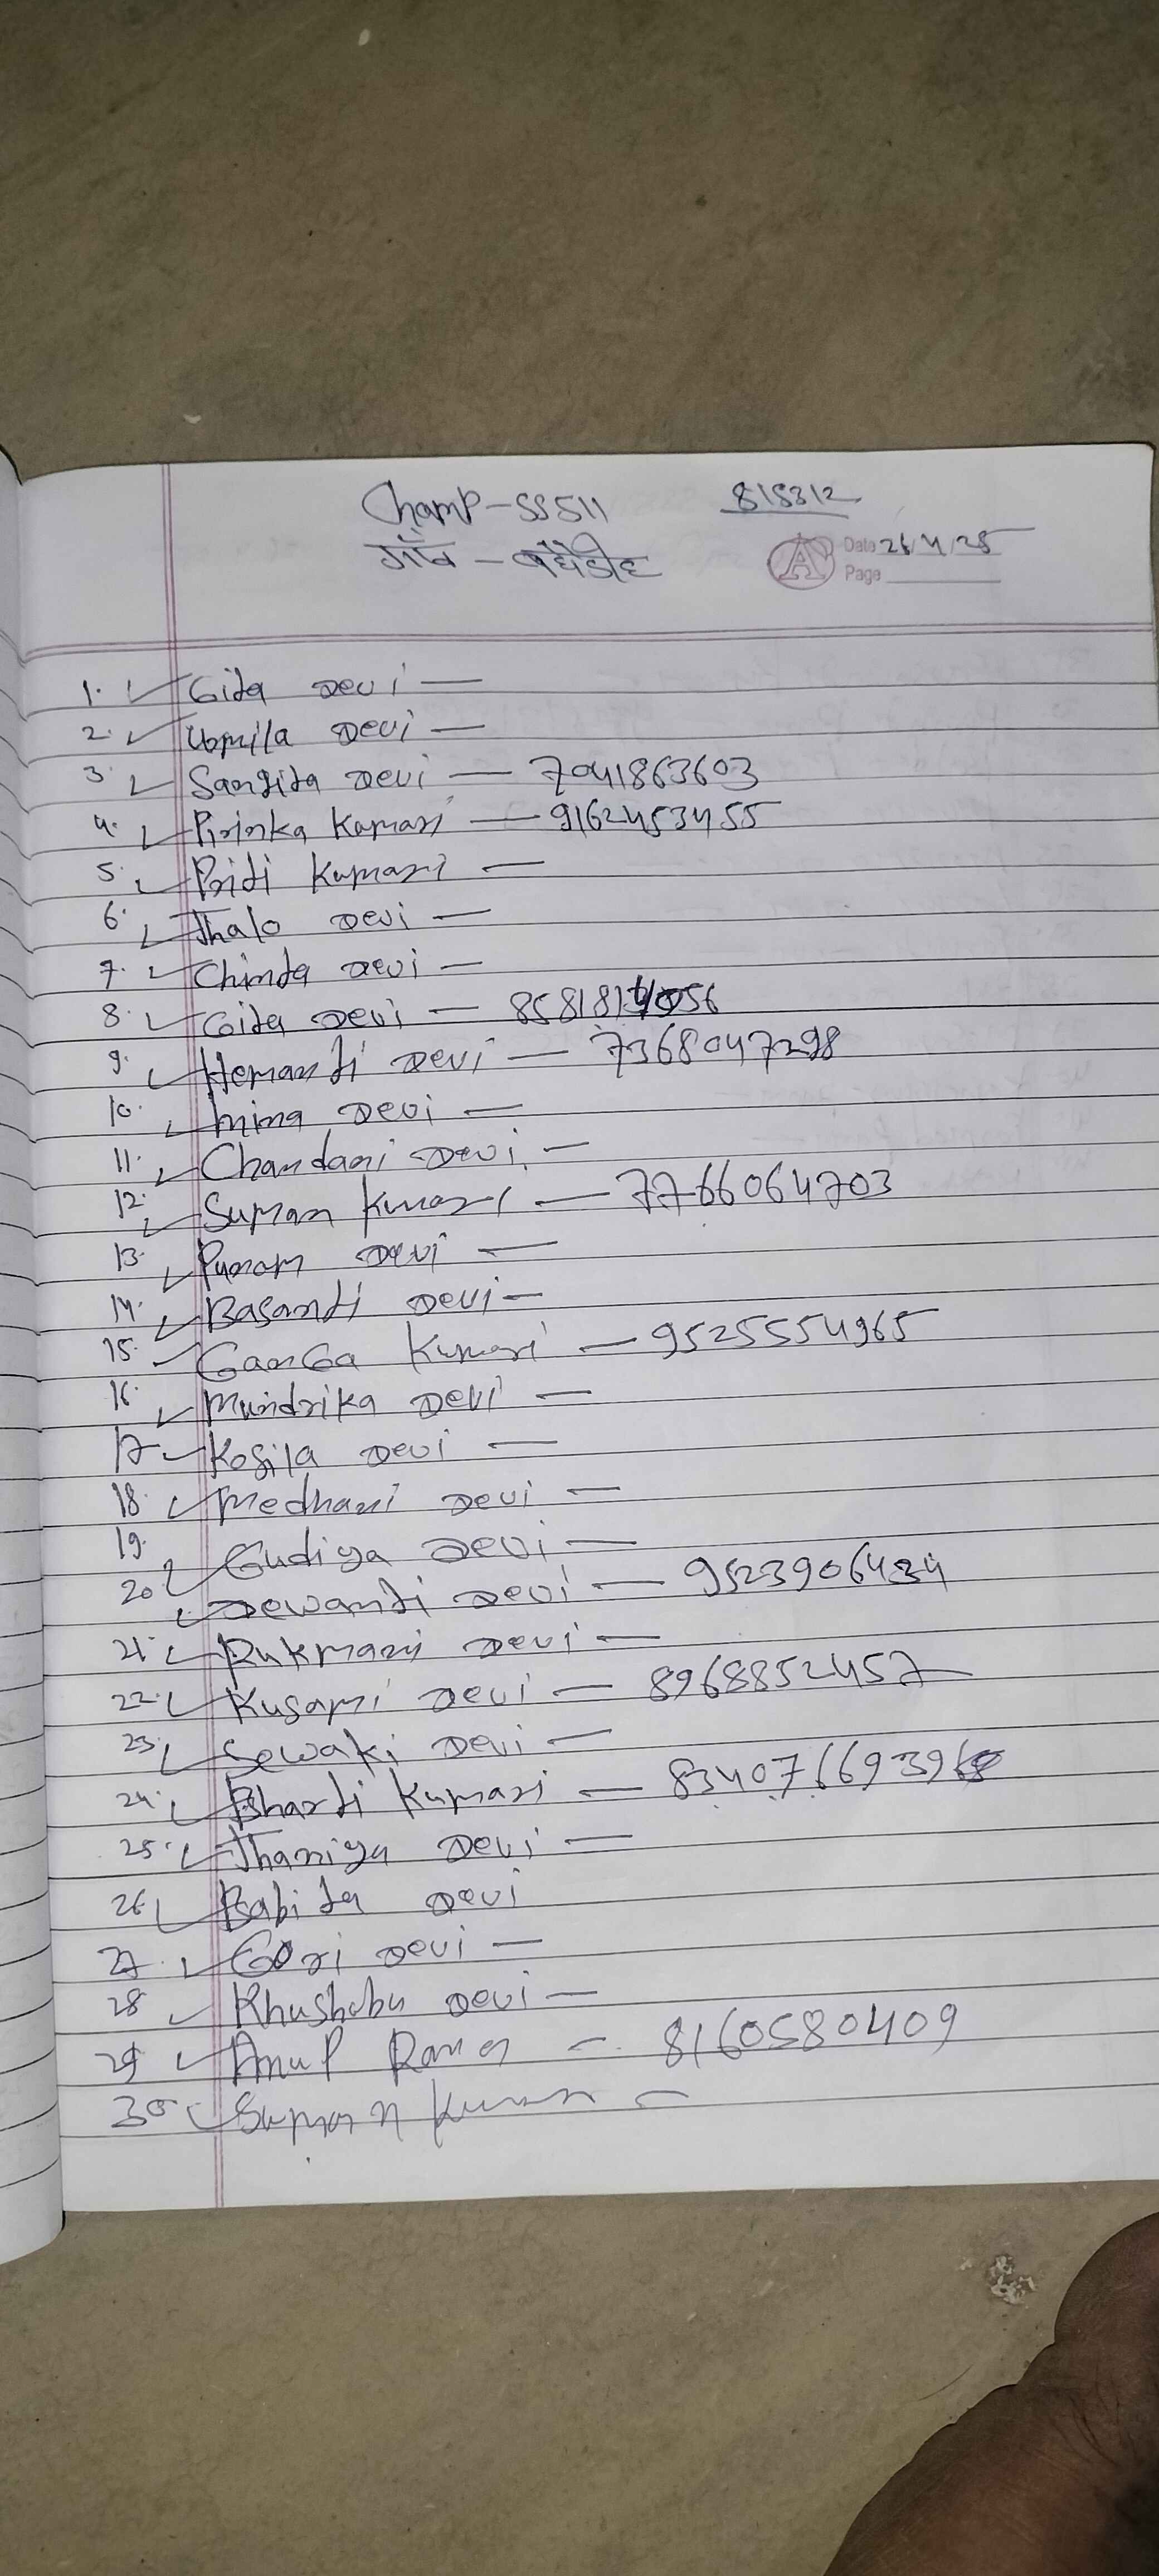 Champ-SS511 815312
गाँव - बघेडीह Date 26/4/25
A Page
1. Gita Devi —
2. Urmila Devi —
3. Sangita Devi — 7041863603
4. Pirinka Kumari — 9162453455
5. Priti Kumari —
6. Jhalo Devi —
7. Chinta Devi —
8. Gita Devi —
9. Hemanti Devi — 7368047298
10. Devi —
11. Chandani Devi —
12. Suman Kumari — 7766064703
13. Punam Devi —
14. Basanti Devi —
15. GanGa Kumari — 9525554965
16. Mundrika Devi —
17 Kosila Devi —
18. Medhani Devi —
19. Gudiya Devi —
20 Dewanti Devi — 9523906434
21. Rukmani Devi —
22. Kusami Devi — 8968852457
23. Sewaki Devi —
24. Bharti Kumari —
25. Jhaniya Devi —
26. Babita Devi
27. Gori Devi —
28 Khushabu Devi —
29 Anup Rana — 8160580409
30 Suman Kumari —